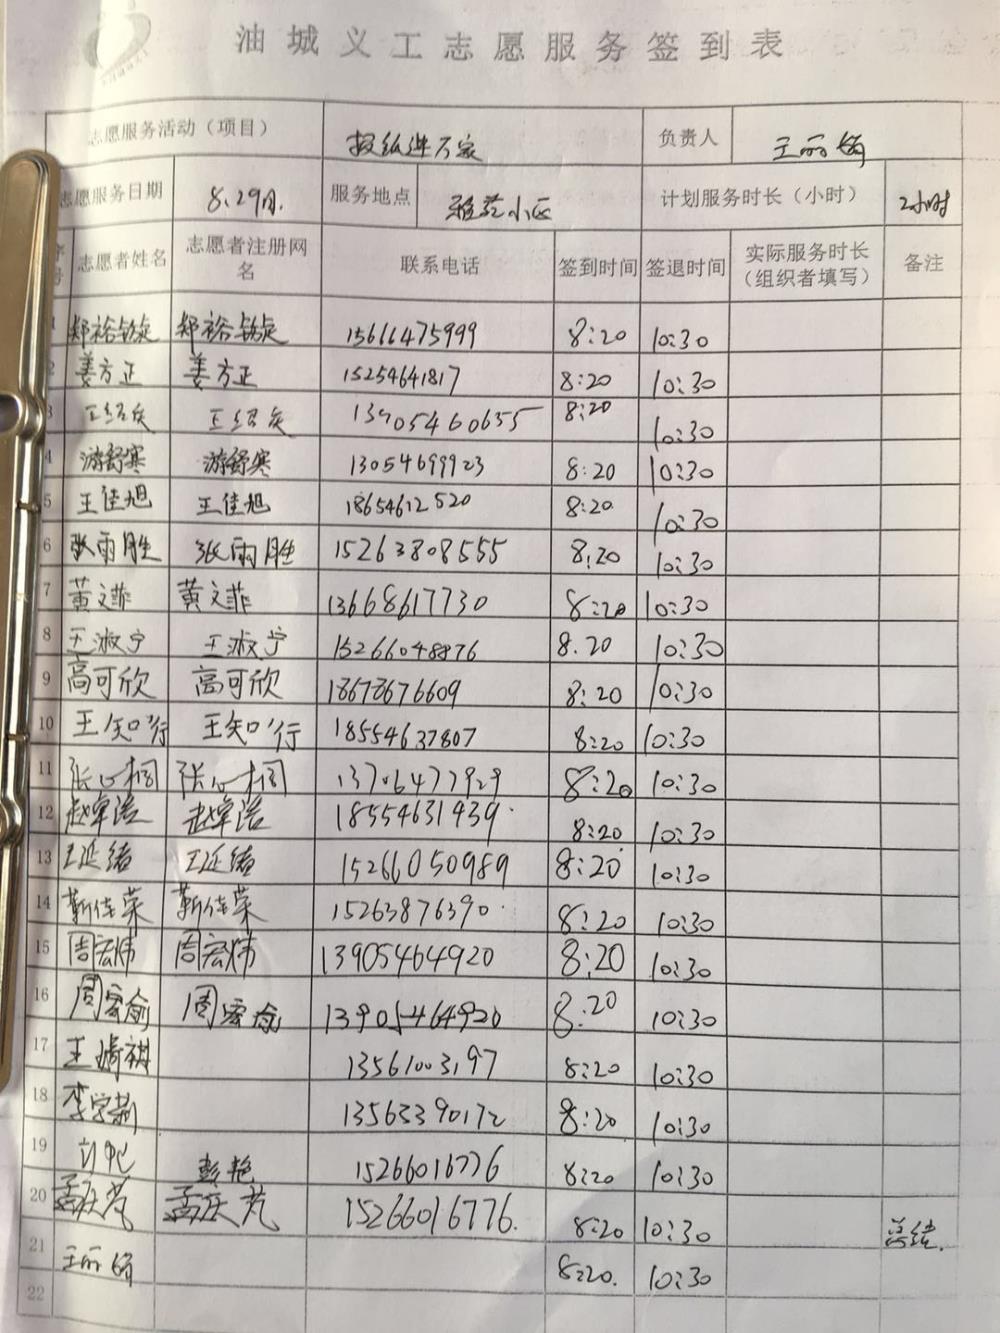 油城义工志愿服务签到表
志愿服务活动（项目） 报纸进万家 负责人 王丽娟
志愿服务日期 8.29日. 服务地点 雅苑小区 计划服务时长（小时） 2小时
序号 志愿者姓名 志愿者注册网名 联系电话 签到时间 签退时间 实际服务时长（组织者填写） 备注
1 8:20 10:30
2 姜方正 姜方正 15254641817 8:20 10:30
3 13905460655 8:20 10:30
4 游舒寒 游舒寒 13054699923 8:20 10:30
5 王佳旭 王佳旭 18654612520 8:20 10:30
6 张雨胜 张雨胜 15263808555 8:20 10:30
7 黄文菲 黄文菲 13668617730 8:20 10:30
8 王淑宁 王淑宁 15266048876 8.20 10:30
9 高可欣 高可欣 18678676609 8:20 10:30
10 王知行 王知行 18554637807 8:20 10:30
11 张心桐 张心桐 13706477929 8:20 10:30
12 赵卓浩 赵卓浩 18554631439 8:20 10:30
13 王延绪 王延绪 15266050989 8:20 10:30
14 靳佳荣 靳佳荣 15263876390 8:20 10:30
15 周宏炜 周宏炜 13905464920 8:20 10:30
16 周宏瑜 周宏瑜 13905464920 8:20 10:30
17 王婧祺 13561003197 8:20 10:30
18 13563390172 8:20 10:30
19 彭艳 15266016776 8:20 10:30
20 孟庆芃 孟庆芃 15266016776. 8:20 10:30 总结.
21 王丽娟 8:20. 10:30
22